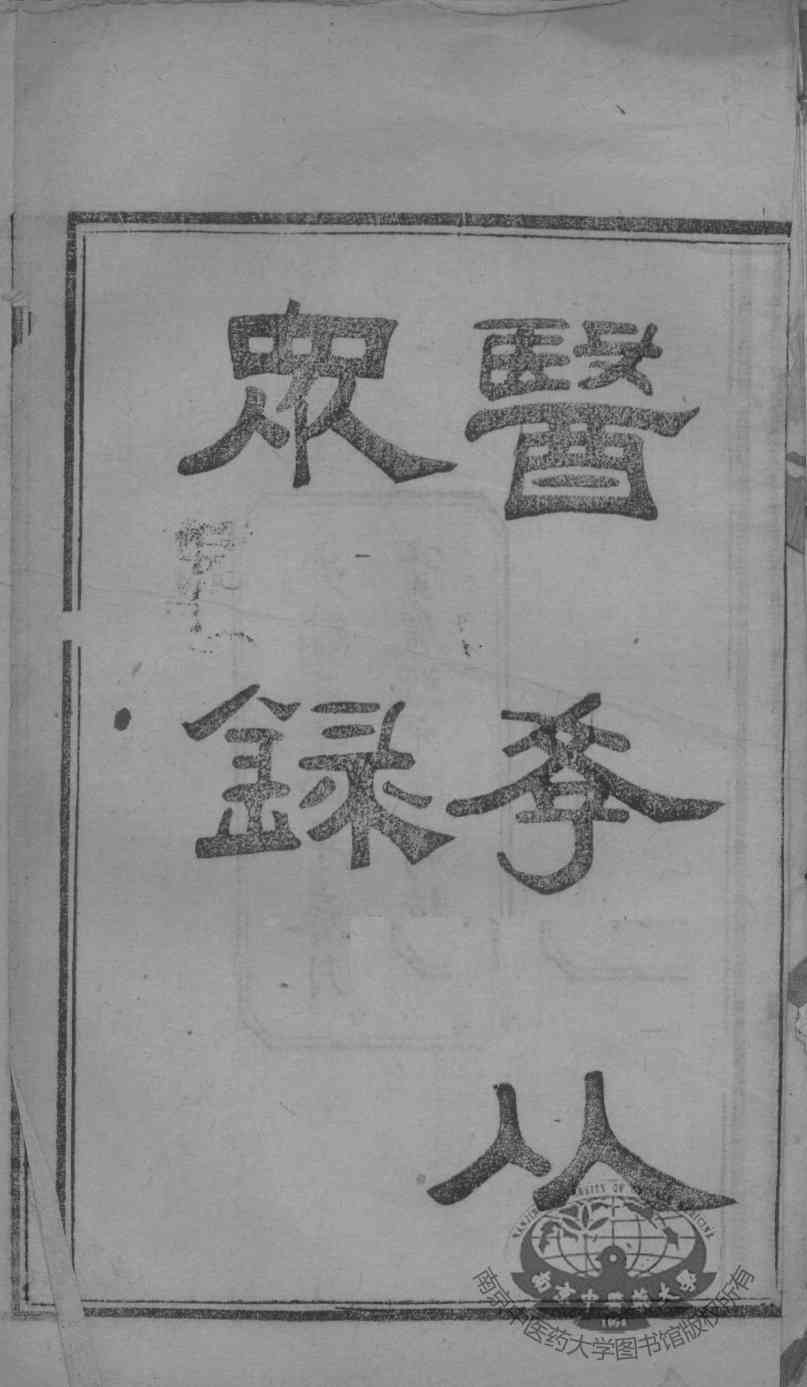 醫斈从
眾録
南京中医药大学图书馆版权所有
1954